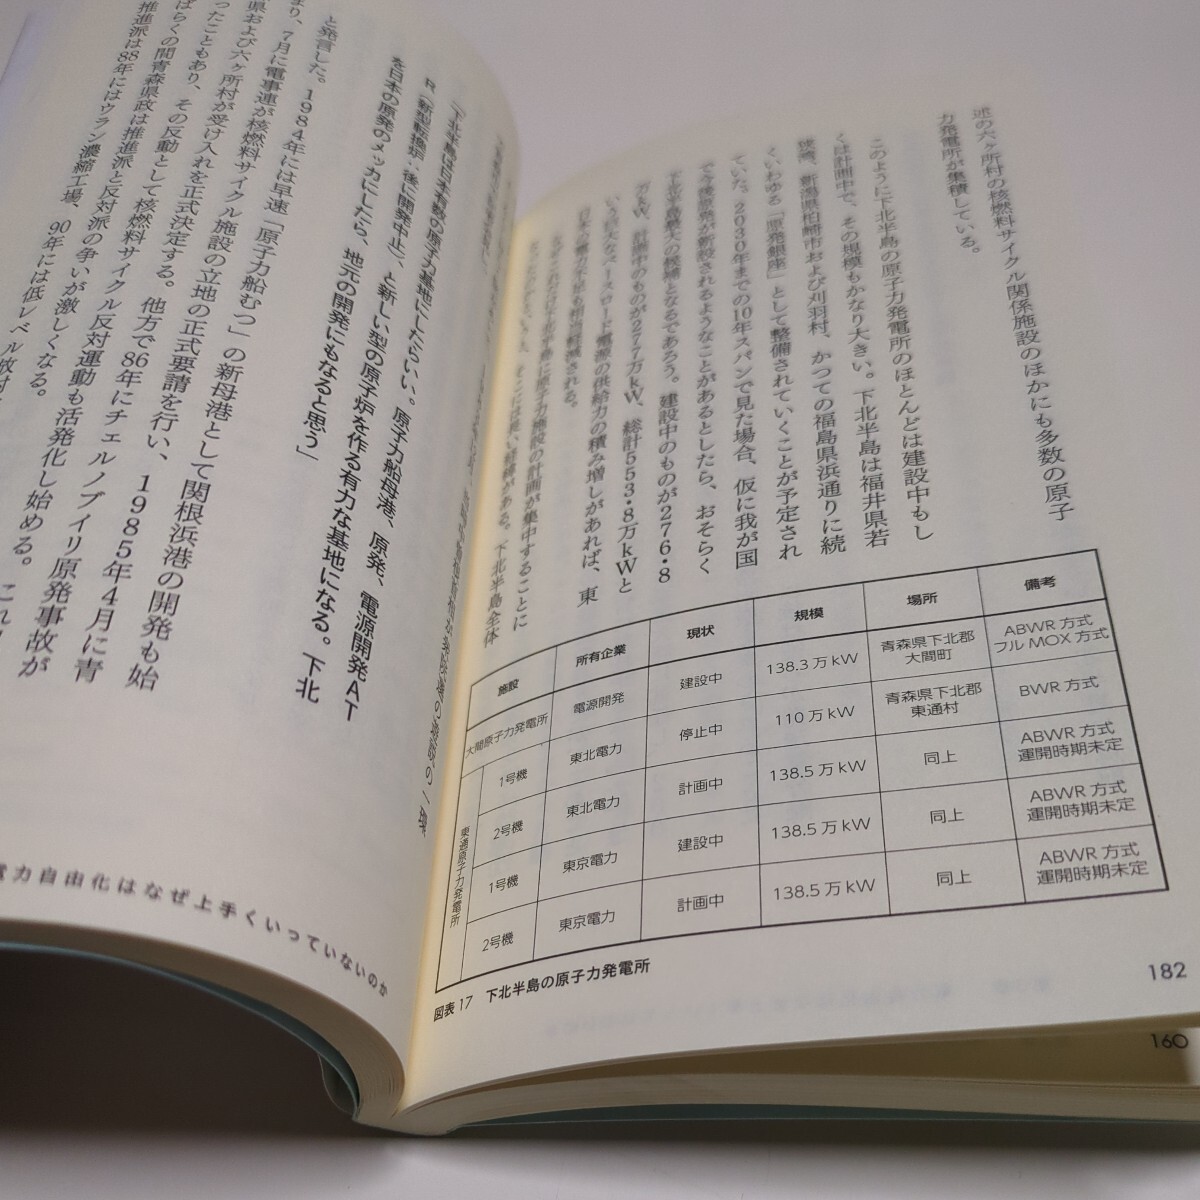 述の六ヶ所村の核燃料サイクル関係施設のほかにも多数の原子
力発電所が集積している。
このように下北半島の原子力発電所のほとんどは建設中もし
くは計画中で、その規模もかなり大きい。下北半島は福井県若
狭湾、新潟県柏崎市および刈羽村、かつての福島県浜通りに続
くいわゆる「原発銀座」として整備されていくことが予定され
ていた。2030年までの10年スパンで見た場合、仮に我が国
で今後原発が新設されるようなことがあるとしたら、おそらく
下北半島が最大の候補となるであろう。建設中のものが276・8
万kW、計画中のものが277万kW、総計553・8万kWと
いう巨大なベースロード電源の供給力の積み増しがあれば、東
日本の電力不足も相当軽減される。
施設
所有企業
現状
規模
場所
備考
大間原子力発電所
電源開発
建設中
138.3万kW
青森県下北郡
大間町
ABWR方式
フルMOX方式
東通原子力発電所
1号機
東北電力
停止中
110万kW
青森県下北郡
東通村
BWR方式
2号機
東北電力
計画中
138.5万kW
同上
ABWR方式
運開時期未定
1号機
東京電力
建設中
138.5万kW
同上
ABWR方式
運開時期未定
2号機
東京電力
計画中
138.5万kW
同上
ABWR方式
運開時期未定
図表17 下北半島の原子力発電所
182
160
「下北半島は日本有数の原子力基地にしたらいい。原子力船母港、原発、電源開発AT
R（新型転換炉・後に開発中止）、と新しい型の原子炉を作る有力な基地になる。下北
を日本の原発のメッカにしたら、地元の開発にもなると思う」
と発言した。1984年には早速「原子力船むつ」の新母港として関根浜港の開発も始
まり、7月に電事連が核燃料サイクル施設の立地の正式要請を行い、1985年4月に青
県および六ヶ所村が受け入れを正式決定する。他方で86年にチェルノブイリ原発事故が
ったこともあり、その反動として核燃料サイクル反対運動も活発化し始める。これ
ばらくの間青森県政は推進派と反対派の争いが激しくなる。
推進派は88年にはウラン濃縮工場、90年には低レベル放射
電力自由化はなぜ上手くいっていないのか